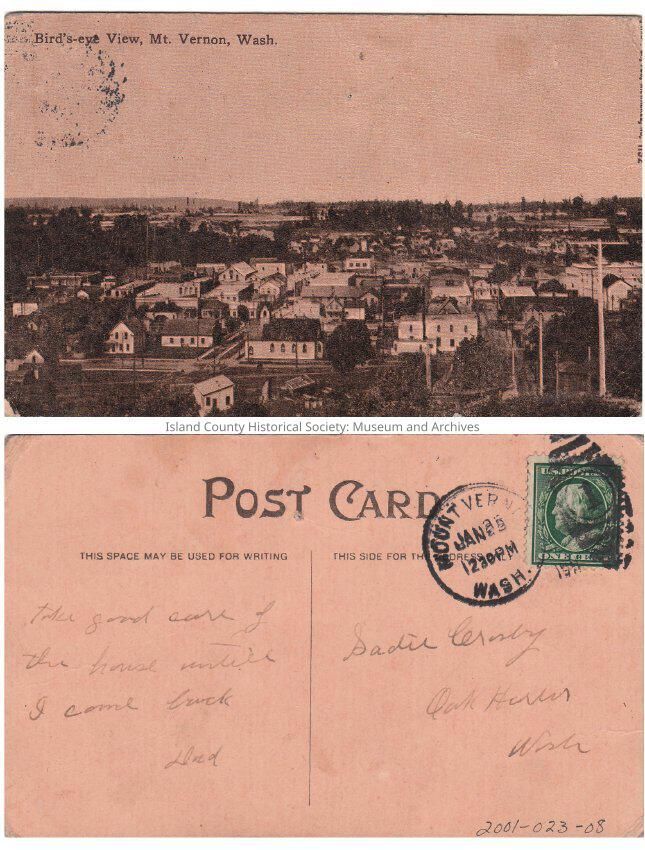 Bird's-eye View, Mt. Vernon, Wash.
Island County Historical Society: Museum and Archives
POST CARD
THIS SPACE MAY BE USED FOR WRITING
THIS SIDE FOR THE ADDRESS
MOUNT VERN
JAN 25
1230PM
WASH.
Take good care of
the house untill
I come back
Dad
Sadie Crosby
Oak Harbor
Wash
2001-023-08